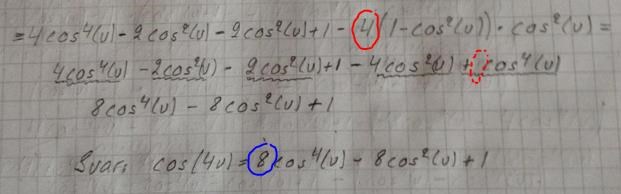 =4cos⁴(v)-2cos²(v)-2cos²(v)+1-4(1-cos²(v))·cos²(v)=
4cos⁴(v)-2cos²(v)-2cos²(v)+1-4cos²(v)+cos⁴(v)
8cos⁴(v)-8cos²(v)+1
Svar: cos(4v)=8cos⁴(v)-8cos²(v)+1